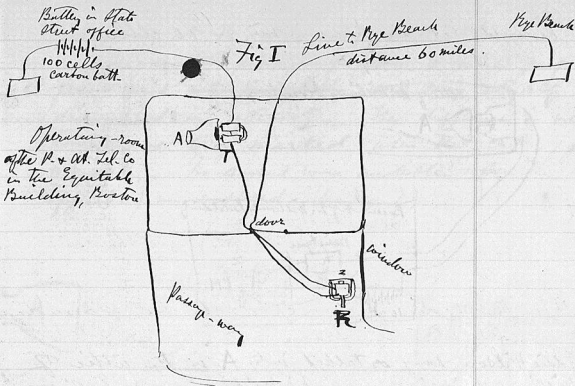 Battery in State
Street office
100 cells
carbon batt.
Fig I
Line to Rye Beach
distance 60 miles.
Rye Beach
Operating-room
of the P. & At. Tel. Co
in the Equitable
Building, Boston
A
T
door
window
Passage-way
2
R